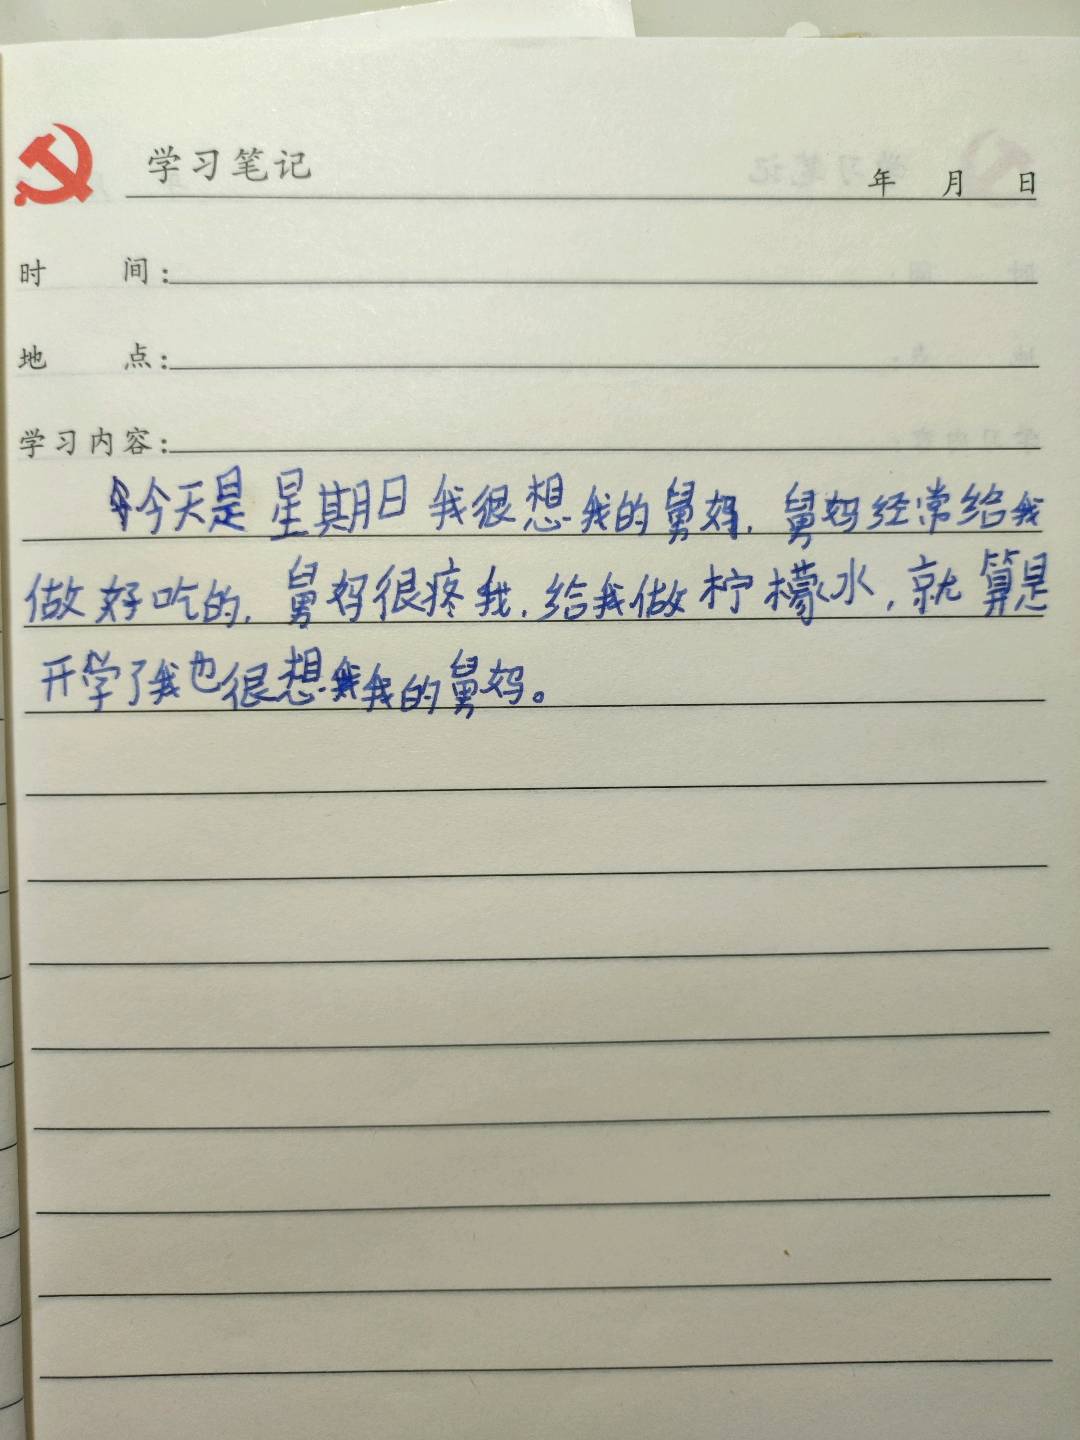 学习笔记
年 月 日
时 间:
地 点:
学习内容:
今天是星期日我很想我的舅妈,舅妈经常给我
做好吃的,舅妈很疼我,给我做柠檬水,就算是
开学了我也很想我的舅妈。